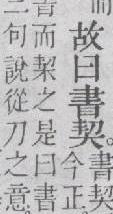 故曰書契。
書契
今正
而栔之是曰書
二句說從刀之意